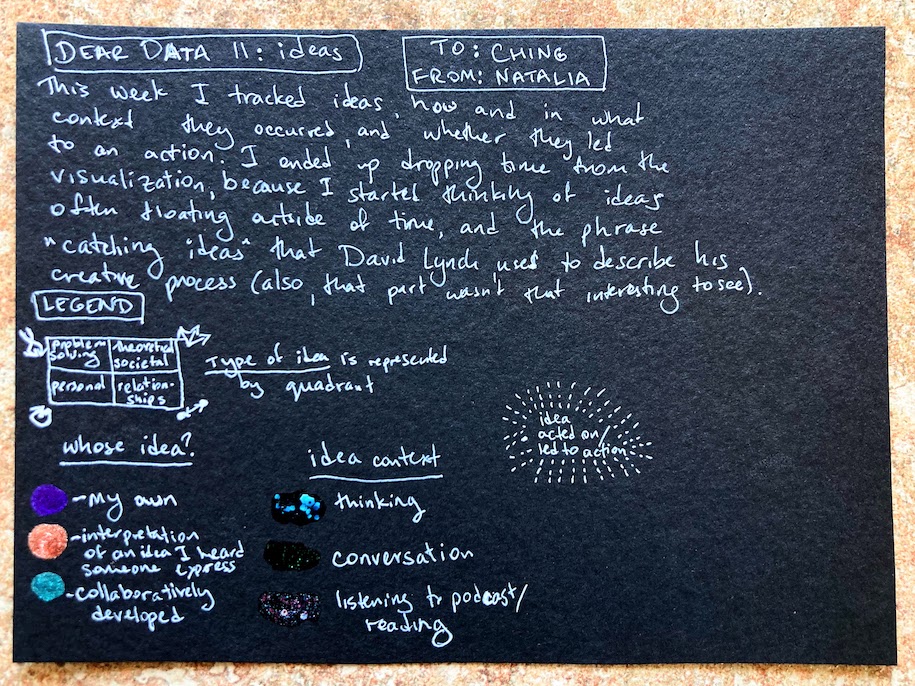 DEAR DATA 11: ideas
TO: CHING
FROM: NATALIA
This week I tracked ideas, how and in what
context they occurred, and whether they led
to an action. I ended up dropping time from the
visualization, because I started thinking of ideas
often floating outside of time, and the phrase
"catching ideas" that David Lynch used to describe his
creative process (also, that part wasn't that interesting to see).
LEGEND
problem
solving
theoretical
societal
personal
relation-
ships
Type of idea is represented
by quadrant
whose idea?
- my own
- interpretation
of an idea I heard
someone express
- collaboratively
developed
idea context
thinking
conversation
listening to podcast/
reading
idea
acted on/
led to action